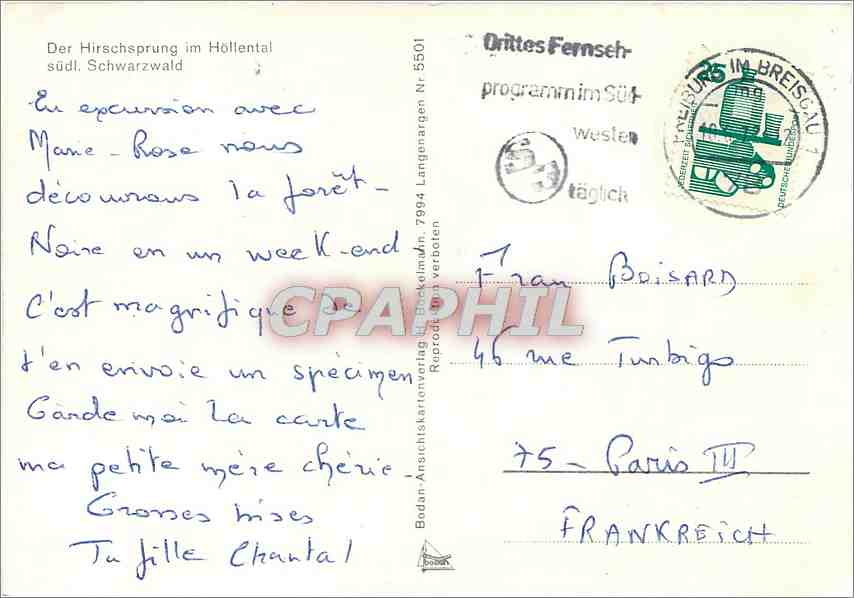 Der Hirschsprung im Höllental
südl. Schwarzwald
En excursion avec
Marie-Rose nous
découvrons la forêt-
Noire en un week-end
C'est magnifique Je
t'en envoie un spécimen
Garde moi la carte
ma petite mère chérie-
Grosses bises
Ta fille Chantal
Bodan-Ansichtskartenverlag H. Bockelmann, 7994 Langenargen Nr 5501
Reproduktion verboten
bodan
Drittes Fernseh-
programm im Süd-
westen
S3
täglich
FREIBURG IM BREISGAU 1
25
JEDERZEIT SICHERHEIT
DEUTSCHE BUNDESPOST
Frau BOISARD
46 rue Turbigo
75 - Paris III
FRANKREICH
CPAPHIL